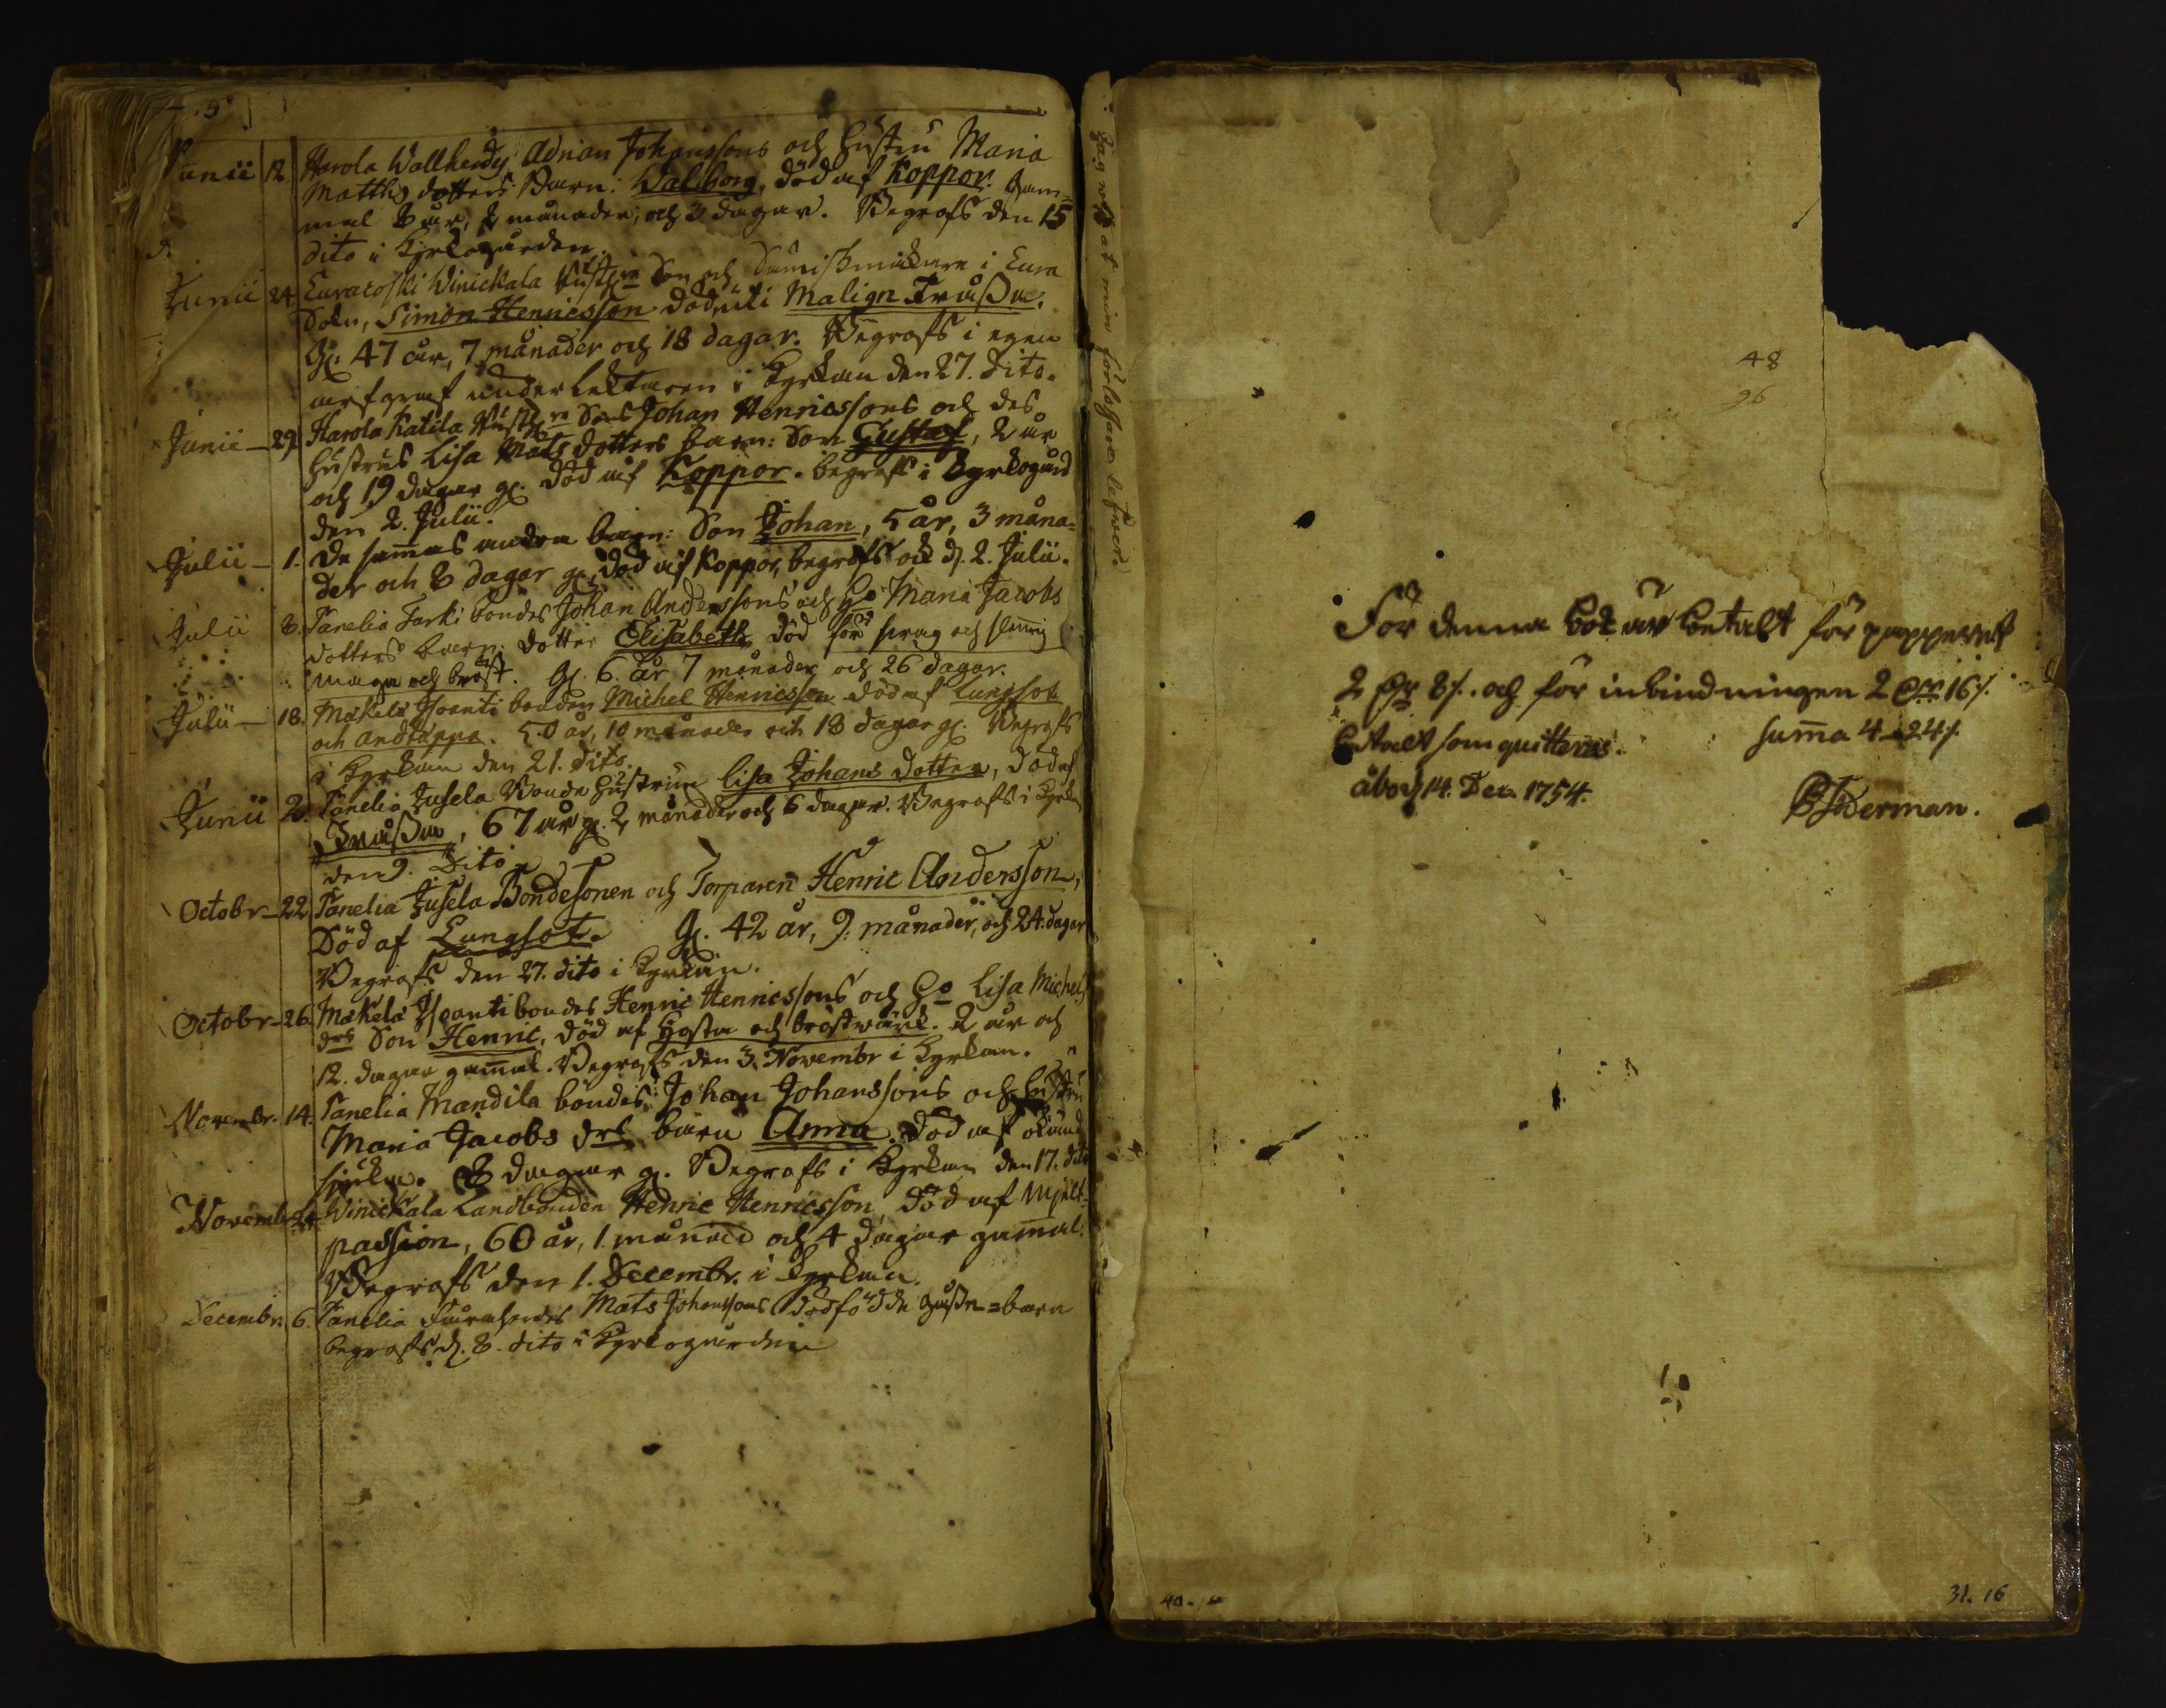 Junii 12 Harola Wallherdz Adrian Johanssons och hustru Maria
Matthz dotters Barn: Walborg, död af Koppor. Gam=
mal 8 år, 2 månader, och 3 dagar. Begrofs den 15
dito i kyrkogården.
Junii 24 Euracoski Winickala Rusth:re Son och Sämiskmakare i Eura
Sokn, Simon Henricsson död uti Malign Tråsa.
Gl: 47 år, 7 månader och 18 dagar. Begrofs i egen
arfgraf under Lecktaren i kyrkan den 27. dito.
Junii - 29 Harola Katila Rusth:re Sons Johan Henricssons och des
hustrus Lisa Mats dotters barn: Son Gustaf, 2 år
och 19 dagar gl. död af Koppor. begrofs i kyrkogård
den 2. Julii.
Julii - 1. De sammas andra barn: Son Johan, 5 år, 3 måna=
der och 8 dagar gl, död af Koppor, begrofs ock d. 2. Julii.
Julii 8. Panelia Tarki bondes Johan Anderssons och ho Maria Jacobs
dotters barn: dotter Elisabeth död för
maga och bröst. Gl. 6 år 7 månader och 26 dagar.
Julii - 18. Mäkelä bonden Michel Henricsson död af Lungsot
och andtäppa. 50 år, 10 månader och 18 dagar gl. Begrofs
i kyrkan den 21. dito.
Junii 2. Panelia Jusela Bonde hustrun Lisa Johans dotter, död af
Tråsa, 67 år gl. 2 månader och 6 dagar. Begrofs i kyrkan
den 9. Dito
Octobr - 22 Panelia Jusela Bondesonen och Torparen Henric Andersson,
Död af Lungsot. Gl. 42 år, 9. månader, och 24. dagar
Begrofs den 27. dito i kyrkan.
Octobr - 26. Mäkelä bondes Henric Henricssons och ho Lisa Michels
drs Son Henric, död af hosta och bröstwärk. 2 år och
12. dagar gammal. Begrofs den 3. Novembr i kyrkan.
Novembr. 14. Panelia Mandila bondes Johan Johanssons och hustru
Maria Jacobs drs barn Anna. död af okänd
siuka. 8 dagar gl. Begrofs i kyrkan den 17. dito
Novembr Winickala Landbonden Henric Henricsson, död af Mjelt-
passion, 60 år, 1. månad och 4 dagar gammal.
Begrofs den 1. Decembr. i kyrkan.
Decembr. 6. Panelia Fåraherdes Mats Johanssons dödfödde gåsse=barn
begrofs d. 8. dito i kyrkogården
Jag wet at min förlossare lefwer.
48
96
För denna bok är betalt för papperet
2 8/. och för inbindningen 2 16/.
betalt som quitteras. Summa 4 - 24/.
åbo d 14. Dec. 1754.
40.
31. 16